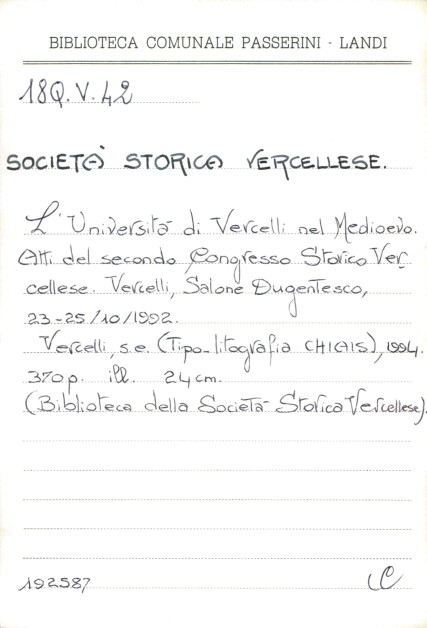 BIBLIOTECA COMUNALE PASSERINI - LANDI
18Q.V.42
SOCIETÀ STORICA VERCELLESE.
L'Università di Vercelli nel Medioevo.
Atti del secondo Congresso Storico Ver-
cellese. Vercelli, Salone Dugentesco,
23-25/10/1992.
Vercelli, s.e. (Tipo-litografia CHIAIS), 1994.
370p. ill. 24cm.
(Biblioteca della Società Storica Vercellese).
192587